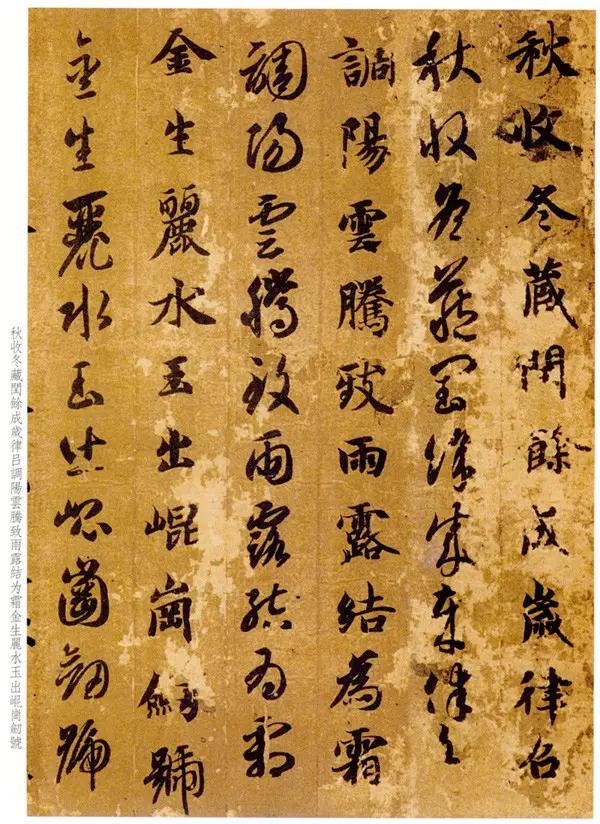 秋收冬藏閏餘成歲律呂
秋收冬藏閏餘成歲律呂
調陽雲騰致雨露結為霜
調陽雲騰致雨露結為霜
金生麗水玉出崐崗劒號
金生麗水玉出崐崗劒號
秋收冬藏閏餘成歲律呂調陽雲騰致雨露結为霜金生麗水玉出崐崗劒號